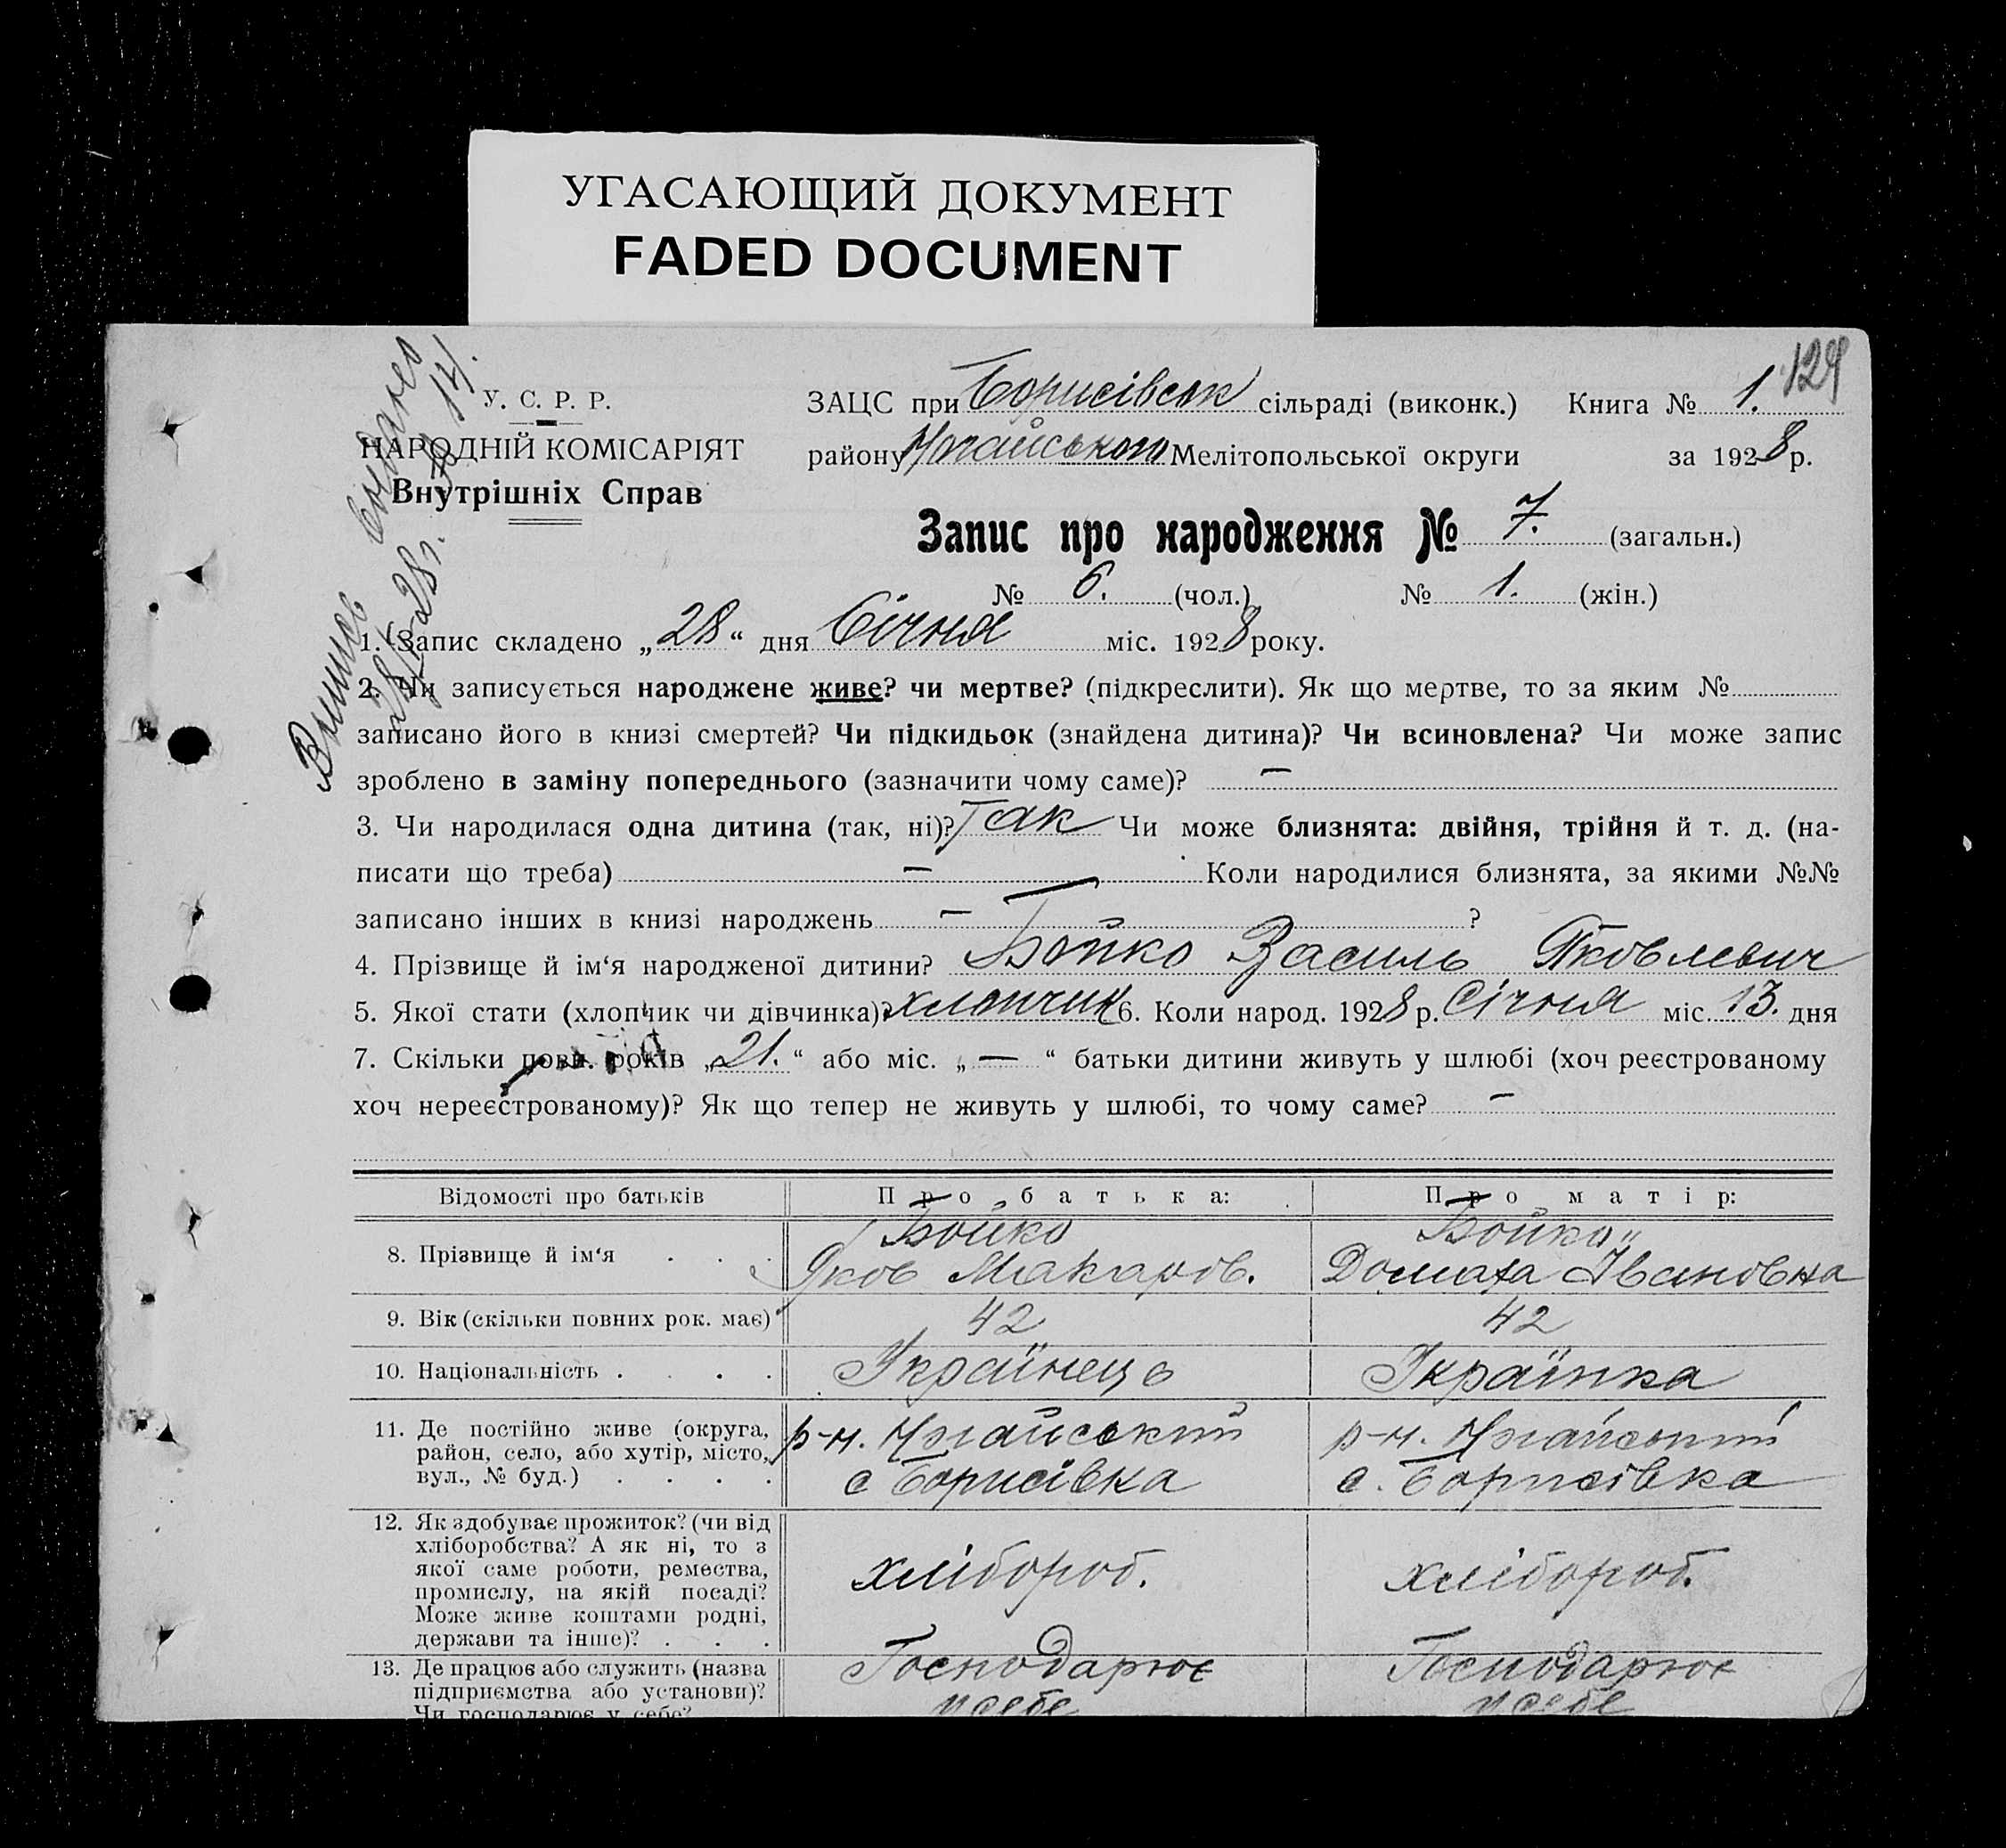 УГАСАЮЩИЙ ДОКУМЕНТ
FADED DOCUMENT
129
У. С. Р. Р.
НАРОДНІЙ КОМІСАРІЯТ
Внутрішніх Справ
ЗАЦС при Борисівськ сільраді (виконк.) Книга № 1.
району Ногайського Мелітопольської округи за 1928 р.
Запис про народження № 7. (загальн.)
№ 6. (чол.) № 1. (жін.)
1. Запис складено „28“ дня Січня міс. 1928 року.
2. Чи записується народжене живе? чи мертве? (підкреслити). Як що мертве, то за яким №
записано його в книзі смертей? Чи підкидьок (знайдена дитина)? Чи всиновлена? Чи може запис
зроблено в заміну попереднього (зазначити чому саме)? —
3. Чи народилася одна дитина (так, ні)? Так Чи може близнята: двійня, трійня й т. д. (на-
писати що треба) — Коли народилися близнята, за якими №№
записано інших в книзі народжень — ?
4. Прізвище й ім‘я народженої дитини? Бойко Василь Яковлевич
5. Якої стати (хлопчик чи дівчинка)? хлопчик 6. Коли народ. 1928 р. Січня міс. 13. дня
7. Скільки повн. років „21.“ або міс. „—“ батьки дитини живуть у шлюбі (хоч реєстрованому
хоч нереєстрованому)? Як що тепер не живуть у шлюбі, то чому саме? —
Відомості про батьків Про батька: Про матір:
8. Прізвище й ім‘я Бойко Яков Макаров. Бойко Домаха Івановна
9. Вік (скільки повних рок. має) 42 42
10. Національність Українець Українка
11. Де постійно живе (округа, р-н. Ногайський р-н. Ногайський
район, село, або хутір, місто, с Борисівка с. Борисівка
вул., № буд.)
12. Як здобуває прожиток? (чи від
хліборобства? А як ні, то з
якої саме роботи, ремества, хлібороб. хлібороб.
промислу, на якій посаді?
Може живе коштами родні,
держави та інше)?
13. Де працює або служить (назва Господарює Господарює
підприємства або установи)? у себе у себе
Чи господарює у себе?